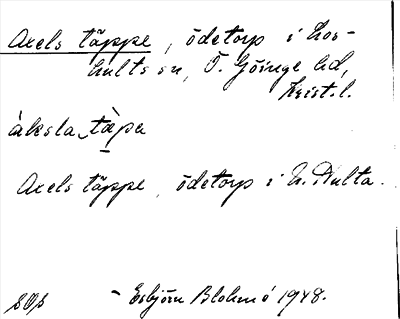 Axels täppe, ödetorp i Los-
hults sn, Ö. Göinge hd,
Krist. l.
àksla tæ̀pa
Axels täppe, ödetorp i N. Hulta.
Esbjörn Blohmé 1948.